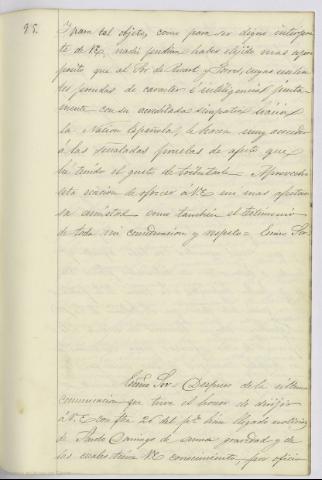 95.
Y para tal objeto, como para ser digno intérpre-
te de VE, nadie podria haber elejido mas a pro-
posito que al Sor de Ricart y Torres, cuyas exelen-
tes prendas de caracter é intelligencias junta-
mente con su acreditada simpatia hácia
la Nation Española, le hacen muy acreedor
á las señaladas pruebas de afecto que
he tenido el gusto de tributarle. Aprovecho
esta ocacion de ofrecer á VE mi mas afectuo-
sa amistad como también el testimonio
de toda mi consideracion y respeto = Exmo Sor.
Exmo Sor = Despues de la ultima
comunicacion que tuve el honor de dirijir
á V.E con fha 26 del pº han llegado noticias
de Santo Domingo de suma gravedad y de
las cuales tenia VE conocimiento, por oficio